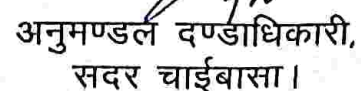 अनुमण्डल दण्डाधिकारी,
सदर चाईबासा।